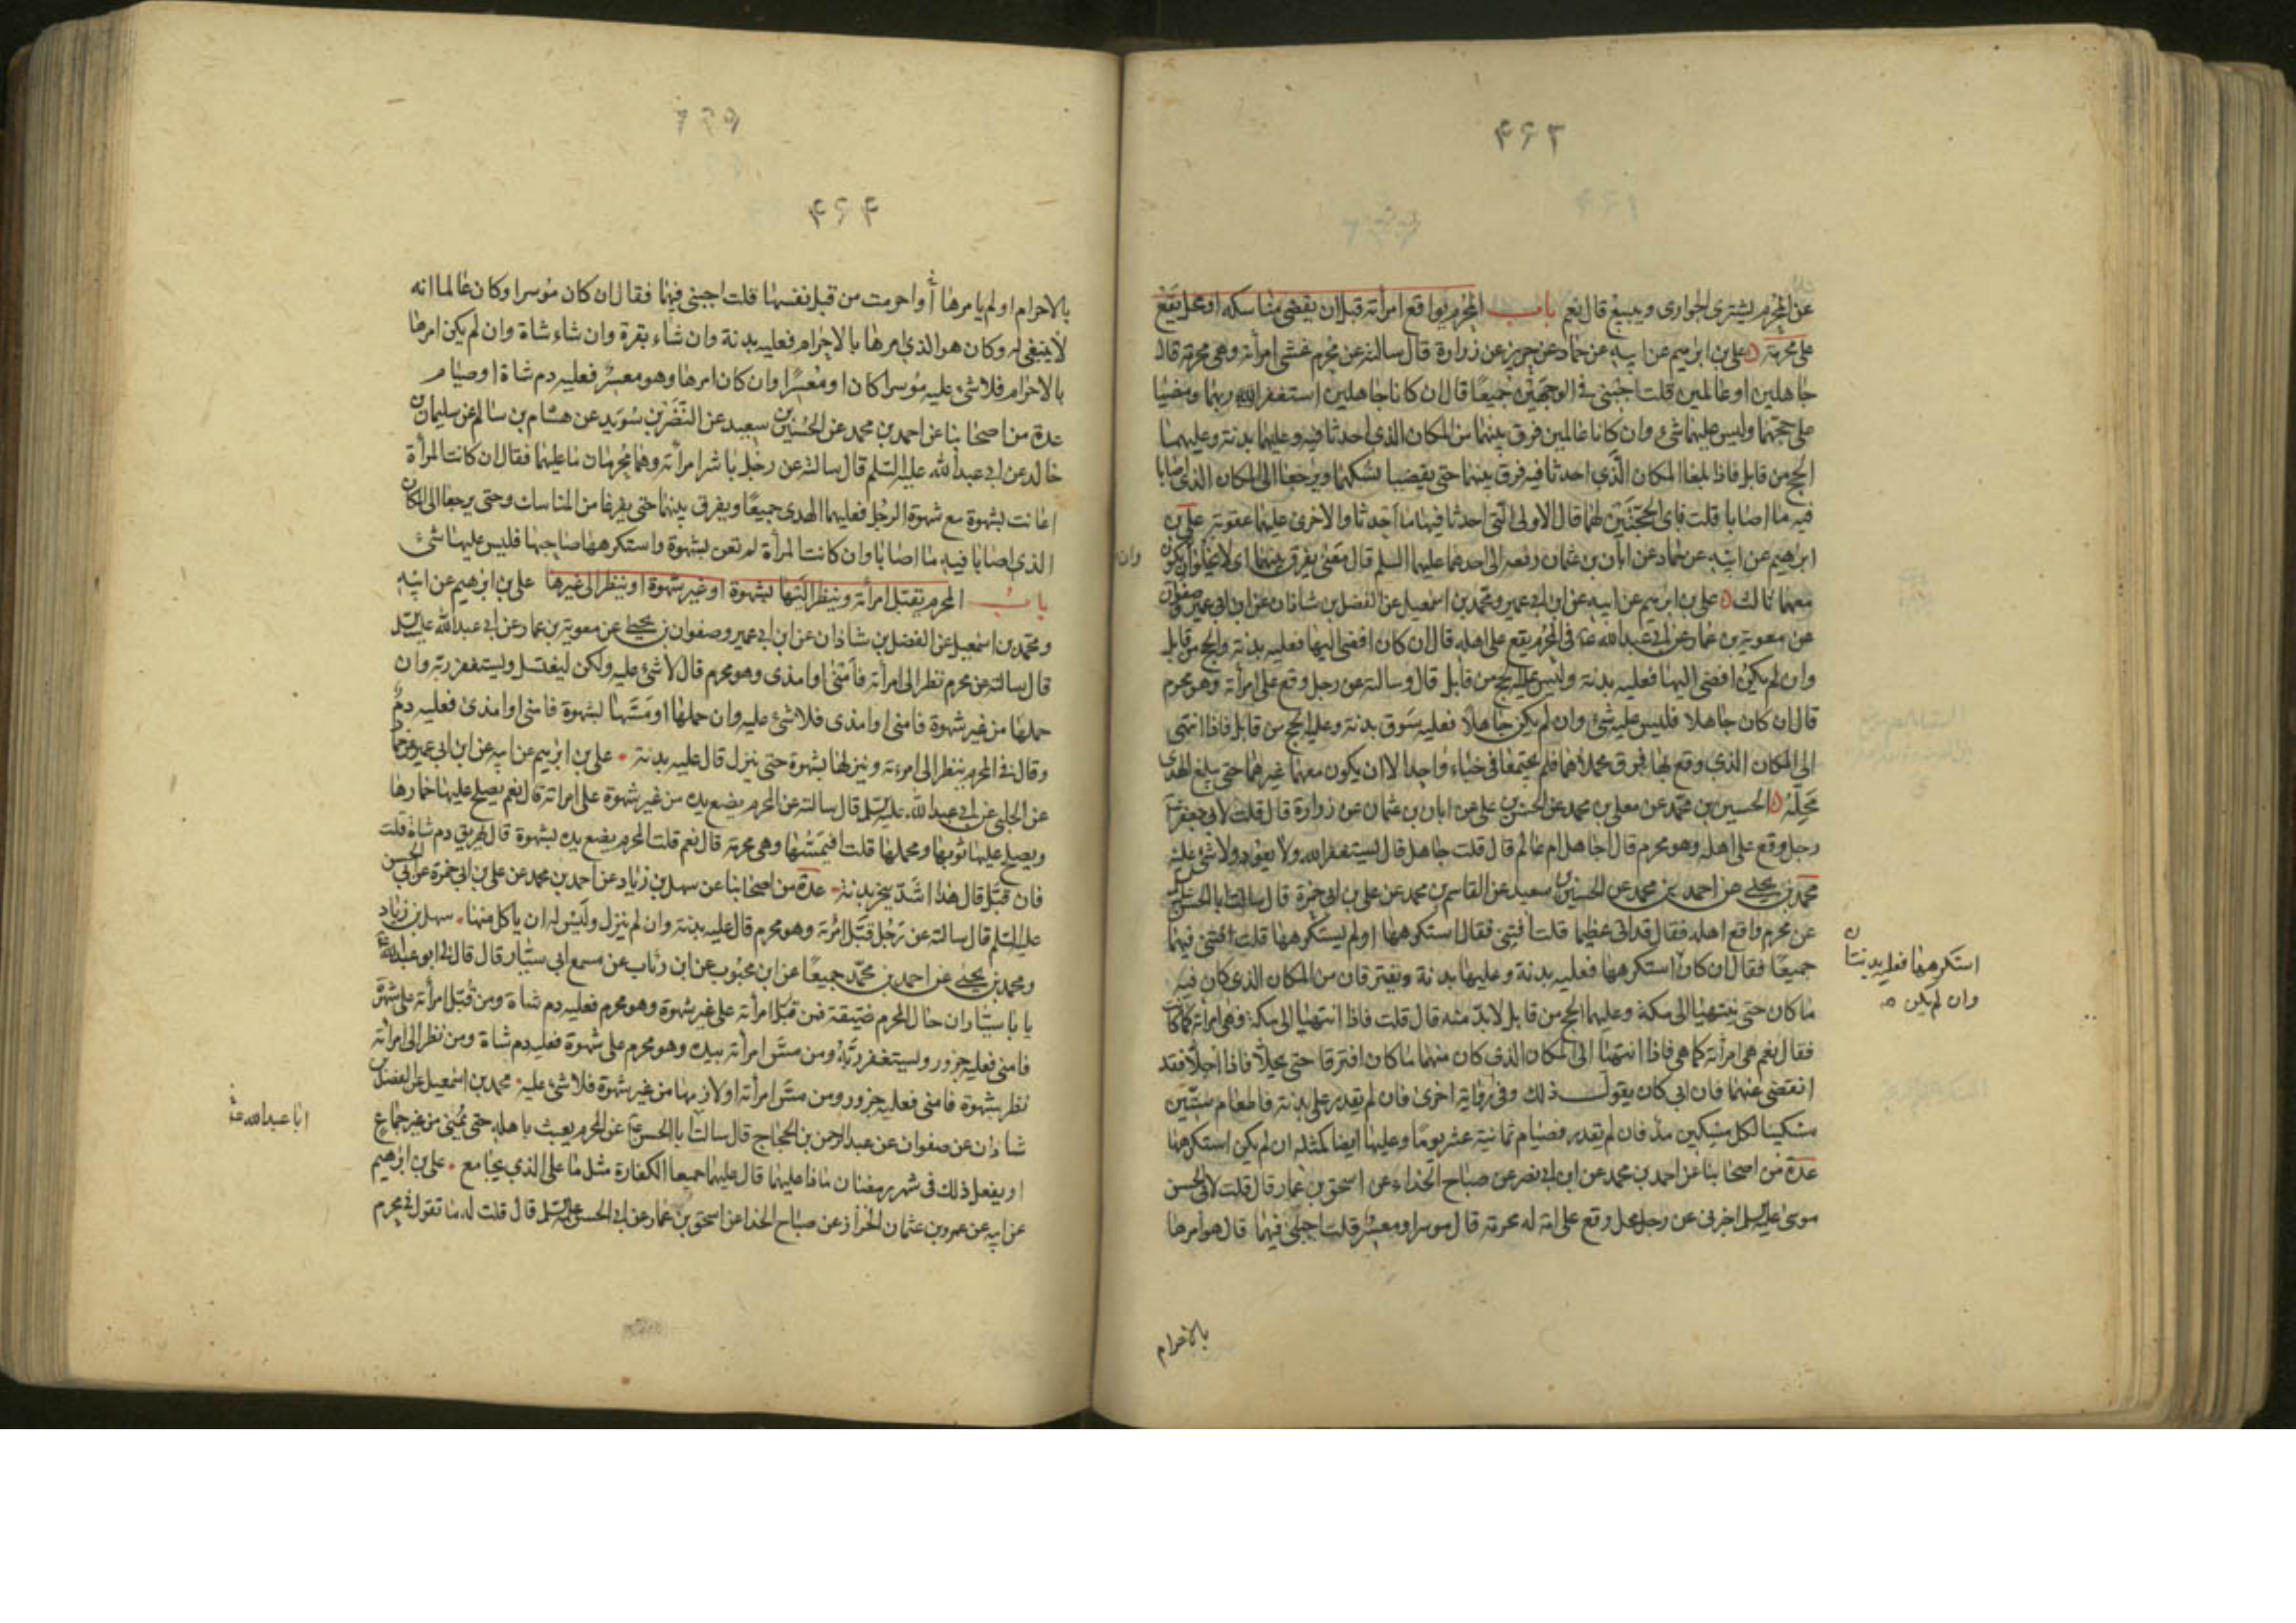 ۴۶۳
عن المحرم يشترى الجوارى ويبيع قال نعم باب المحرم يواقع امرأته قبل ان يقضى مناسكه او محل يقع
على محرمة علي بن ابرهيم عن ابيه عن حماد عن حريز عن زرارة قال سالته عن محرم غشى امرأته وهى محرمة قال
جاهلين او عالمين قلت اجبنى فى الوجهين جميعا قال ان كانا جاهلين استغفرا الله ربهما ومضيا
على حجهما وليس عليهما شئ وان كانا عالمين فرق بينهما من المكان الذى احدثا فيه وعليهما بدنة وعليهما
الحج من قابل فاذا بلغا المكان الذى احدثا فيه فرق بينهما حتى يقضيا نسكهما ويرجعا الى المكان الذى اصابا
فيه ما اصابا قلت فاى الحجتين لهما قال الاولى التى احدثا فيها ما احدثا والاخرى عليهما عقوبة على بن
ابرهيم عن ابيه عن حماد عن ابان بن عثمان رفعه الى احدهما عليهما السلم قال معنى يفرق بينهما اى لا يخلوان وان يكون
معهما ثالث علي بن ابرهيم عن ابيه عن ابن ابى عمير ومحمد بن اسمعيل عن الفضل بن شاذان عن ابن ابى عمير وصفوان
عن معوية بن عمار عن ابى عبد الله ع فى المحرم يقع على اهله قال ان كان افضى اليها فعليه بدنة والحج من قابل
وان لم يكن افضى اليها فعليه بدنة وليس عليه الحج من قابل قال وسالته عن رجل وقع على امرأته وهو محرم
قال ان كان جاهلا فليس عليه شئ وان لم يكن جاهلا فعليه سوق بدنة وعليه الحج من قابل فاذا انتهى
الى المكان الذى وقع بها فرق محملاهما فلم يجتمعا فى خباء واحد الا ان يكون معهما غيرهما حتى يبلغ الهدى
محله الحسين بن محمد عن معلى بن محمد عن الحسن بن على عن ابان بن عثمان عن زرارة قال قلت لابى جعفر ع
رجل وقع على اهله وهو محرم قال اجاهل ام عالم قال قلت جاهل قال يستغفر الله ولا يعود ولا شئ عليه
محمد بن يحيى عن احمد بن محمد عن الحسين بن سعيد عن القاسم بن محمد عن على بن ابى حمزة قال سالت ابا الحسن ع
عن محرم واقع اهله فقال قد اتى عظيما قلت افتنى فقال استكرهها او لم يستكرهها قلت افتنى فيهما
جميعا فقال ان كان استكرهها فعليه بدنة وعليها بدنة ويفترقان من المكان الذى كان فيه
استكرهها فعليه بدنتان
وان لم يكن
ما كان حتى ينتهيا الى مكة وعليهما الحج من قابل لا بد منه قال قلت فاذا انتهيا الى مكة فهى امراته كما كانت
فقال نعم هى امرأته كما هى فاذا انتهيا الى المكان الذى كان منهما ما كان افترقا حتى يحلا فاذا احلا فقد
انقضى عنهما فان ابى كان يقول ذلك وفى رواية اخرى فان لم يقدر على بدنة فاطعام ستين
مسكينا لكل مسكين مد فان لم يقدر فصيام ثمانية عشر يوما وعليها ايضا كمثله ان لم يكن استكرهها
عدة من اصحابنا عن احمد بن محمد عن ابن ابى نصر عن صباح الحذاء عن اسحق بن عمار قال قلت لابى الحسن
موسى عليه السلم اخبرنى عن رجل محل وقع على امة له محرمة قال موسر او معسر قلت اجبنى فيهما قال هو امرها
بالاحرام
۴۶۴
بالاحرام او لم يامرها او احرمت من قبل نفسها قلت اجبنى فيها فقال ان كان موسرا وكان عالما انه
لا ينبغى له وكان هو الذى امرها بالاحرام فعليه بدنة وان شاء بقرة وان شاء شاة وان لم يكن امرها
بالاحرام فلا شئ عليه موسرا كان او معسرا وان كان امرها وهو معسر فعليه دم شاة او صيام
عدة من اصحابنا عن احمد بن محمد عن الحسين بن سعيد عن النضر بن سويد عن هشام بن سالم عن سليمان بن
خالد عن ابى عبد الله عليه السلم قال سالته عن رجل باشر امرأته وهما محرمان ما عليهما فقال ان كانت المرأة
اعانت بشهوة مع شهوة الرجل فعليهما الهدى جميعا ويفرق بينهما حتى يفرغا من المناسك وحتى يرجعا الى المكان
الذى اصابا فيه ما اصابا وان كانت المرأة لم تعن بشهوة واستكرهها صاحبها فليس عليها شئ
باب المحرم يقبل امرأته وينظر اليها بشهوة او غير شهوة او ينظر الى غيرها علي بن ابرهيم عن ابيه
ومحمد بن اسمعيل عن الفضل بن شاذان عن ابن ابى عمير وصفوان بن يحيى عن معوية بن عمار عن ابى عبد الله عليه السلم
قال سالته عن محرم نظر الى امرأته فأمنى او امذى وهو محرم قال لا شئ عليه ولكن ليغتسل وليستغفر ربه وان
حملها من غير شهوة فامنى او امذى فلا شئ عليه وان حملها او مسها بشهوة فامنى او امذى فعليه دم
وقال فى المحرم ينظر الى امرءته وينزلها بشهوة حتى ينزل قال عليه بدنة علي بن ابرهيم عن ابيه عن ابن ابى عمير عن حماد
عن الحلبى عن ابى عبد الله عليه السلم قال سالته عن المحرم يضع يده من غير شهوة على امراته قال نعم يصلح عليها خمارها
ويصلح عليها ثوبها ومحملها قلت افيمسها وهى محرمة قال نعم قلت المحرم يضع يده بشهوة قال يهريق دم شاة قلت
فان قبل قال هذا اشد ينحر بدنة عدة من اصحابنا عن سهل بن زياد عن احمد بن محمد عن على بن ابى حمزة عن ابى الحسن
عليه السلم قال سالته عن رجل قبل امرئة وهو محرم قال عليه بدنة وان لم ينزل وليس له ان ياكل منها سهل بن زياد
ومحمد بن يحيى عن احمد بن محمد جميعا عن ابن محبوب عن ابن رئاب عن مسمع ابى سيار قال قال لى ابو عبد الله ع
يا با سيار ان حال المحرم ضيقة فمن قبل امرأته على غير شهوة وهو محرم فعليه دم شاة ومن قبل امرأته على شهوة
فامنى فعليه جزور وليستغفر ربه ومن مس امرأته بيده وهو محرم على شهوة فعليه دم شاة ومن نظر الى امرأته
نظر بشهوة فامنى فعليه جزور ومن مس امرأته او لازمها من غير شهوة فلا شئ عليه محمد بن اسمعيل عن الفضل بن
شاذان عن صفوان عن عبد الرحمن بن الحجاج قال سالت ابا الحسن ع عن المحرم يعبث باهله حتى يمنى من غير جماع
ابا عبد الله ع
او يفعل ذلك فى شهر رمضان ماذا عليهما قال عليهما جميعا الكفارة مثل ما على الذى يجامع علي بن ابرهيم
عن ابيه عن عمرو بن عثمان الخزاز عن صباح الحذا عن اسحق بن عمار عن ابى الحسن عليه السلم قال قلت له ما تقول فى محرم